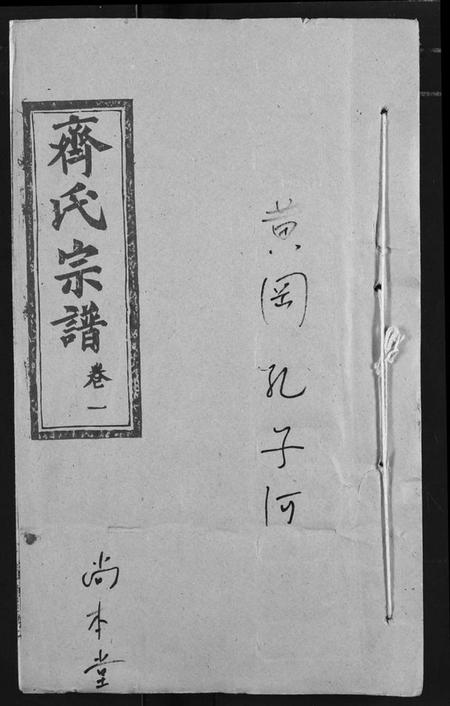 黄冈孔子河
齊氏宗譜 卷一
尚本堂